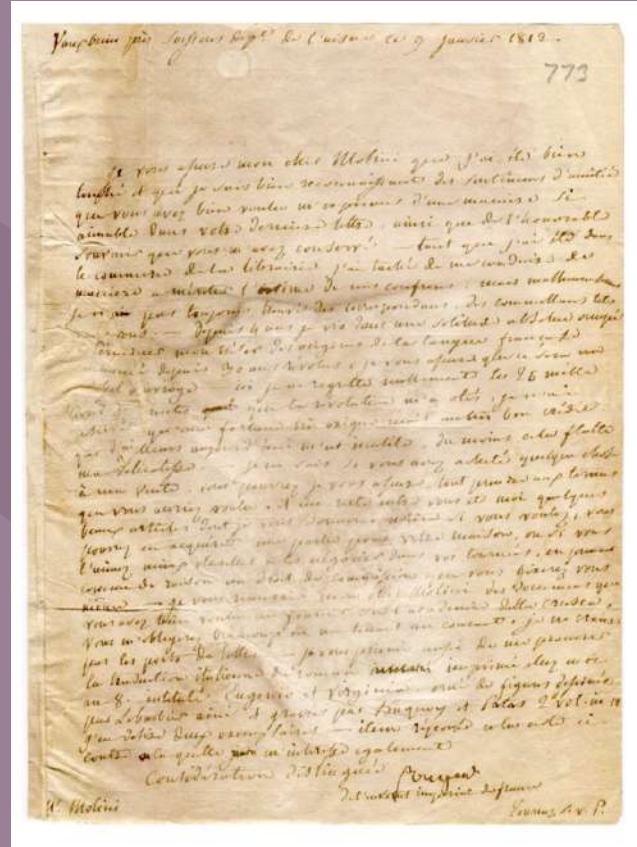 Vauxbuin près Soissons dépt. de l'aisne ce 9 janvier 1812.
773
je vous assure mon cher Molini que j'ai été bien
touché et que je suis bien reconnaissant des sentimens d'amitié
que vous avez bien voulu m'exprimer d'une maniere si
aimable dans votre derniere lettre, ainsi que de l'honorable
souvenir que vous m'avez conservé. — tant que j'ai été dans
le commerce de la librairie j'ai taché de me conduire de
maniere a meriter l'estime de mes confreres; mais malheureusement
je n'ai pas toujours trouvé des correspondans, des commettans tels
que vous. — Depuis 4 ans je vis dans une solitude absolue
mon trésor des origines de la langue française
depuis 30 ans révolus, je vous assure que ce sera un
bel ouvrage je ne regrette nullement les 26 mille
que la révolution m'a otés, je
que ma fortune
aujourd'hui m'est inutile. du moins cela flatte
ma délicatesse. — je ne sais si vous avez acheté quelque chose
à ma vente. vous pourrez je vous assure, tout prendre aux termes
que vous auriez voulu. il me reste entre vous et moi quelques
beaux articles, dont je vous donnerai notice si vous voulez, vous
pourrez en acquérir une partie pour votre maison, ou si vous
l'aimez mieux
de raison un droit de commission que vous fixerez vous
même — je vous remercie mon cher Molini des documens que
vous avez bien voulu me fournir sur l'academie della Crusca,
vous m'obligerez beaucoup en me tenant au courant, je ne crains
pas les ports de lettres. — je vous prierai aussi de me procurer
la traduction italienne du roman imprimé chez moi
in 8. intitulé Eugenio et Virginia orné de figures dessinées
par Lebarbier ainé et gravées par et Patas 2 vol. in 18
j'en désire deux exemplaires — item réponse a la
contre la quelle m'intéresse egalement
Considération distinguée
Pougens
de l'institut impérial de france
Mr. Molini
Tournez s. v. P.